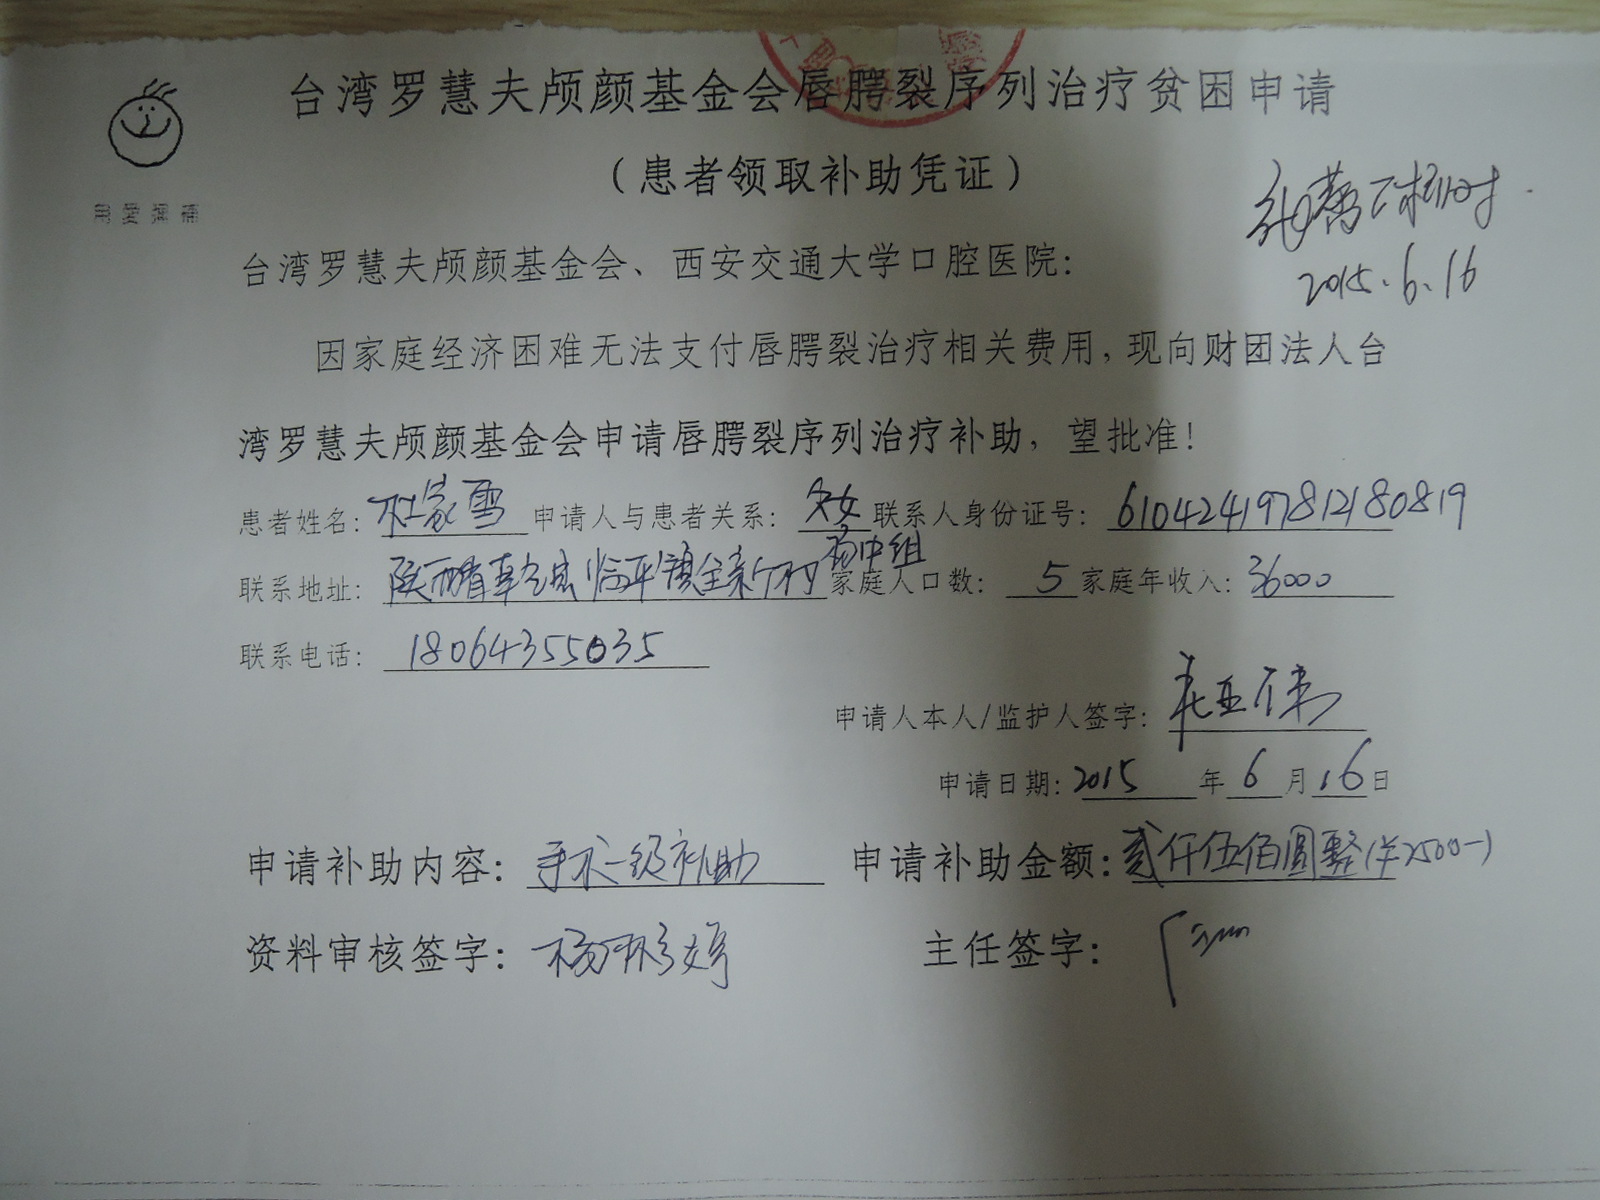 台湾罗慧夫颅颜基金会唇腭裂序列治疗贫困申请
（患者领取补助凭证）
用爱弥补
2015.6.16
台湾罗慧夫颅颜基金会、西安交通大学口腔医院：
因家庭经济困难无法支付唇腭裂治疗相关费用，现向财团法人台
湾罗慧夫颅颜基金会申请唇腭裂序列治疗补助，望批准！
患者姓名：杜家雪 申请人与患者关系：父女 联系人身份证号：610424197812180819
联系地址：陕西省乾县临平镇全新村 家庭人口数：5 家庭年收入：36000
联系电话：18064355035
申请人本人/监护人签字：
申请日期：2015年6月16日
申请补助内容：手术一级补助 申请补助金额：贰仟伍佰圆整(￥2500-)
资料审核签字： 主任签字：